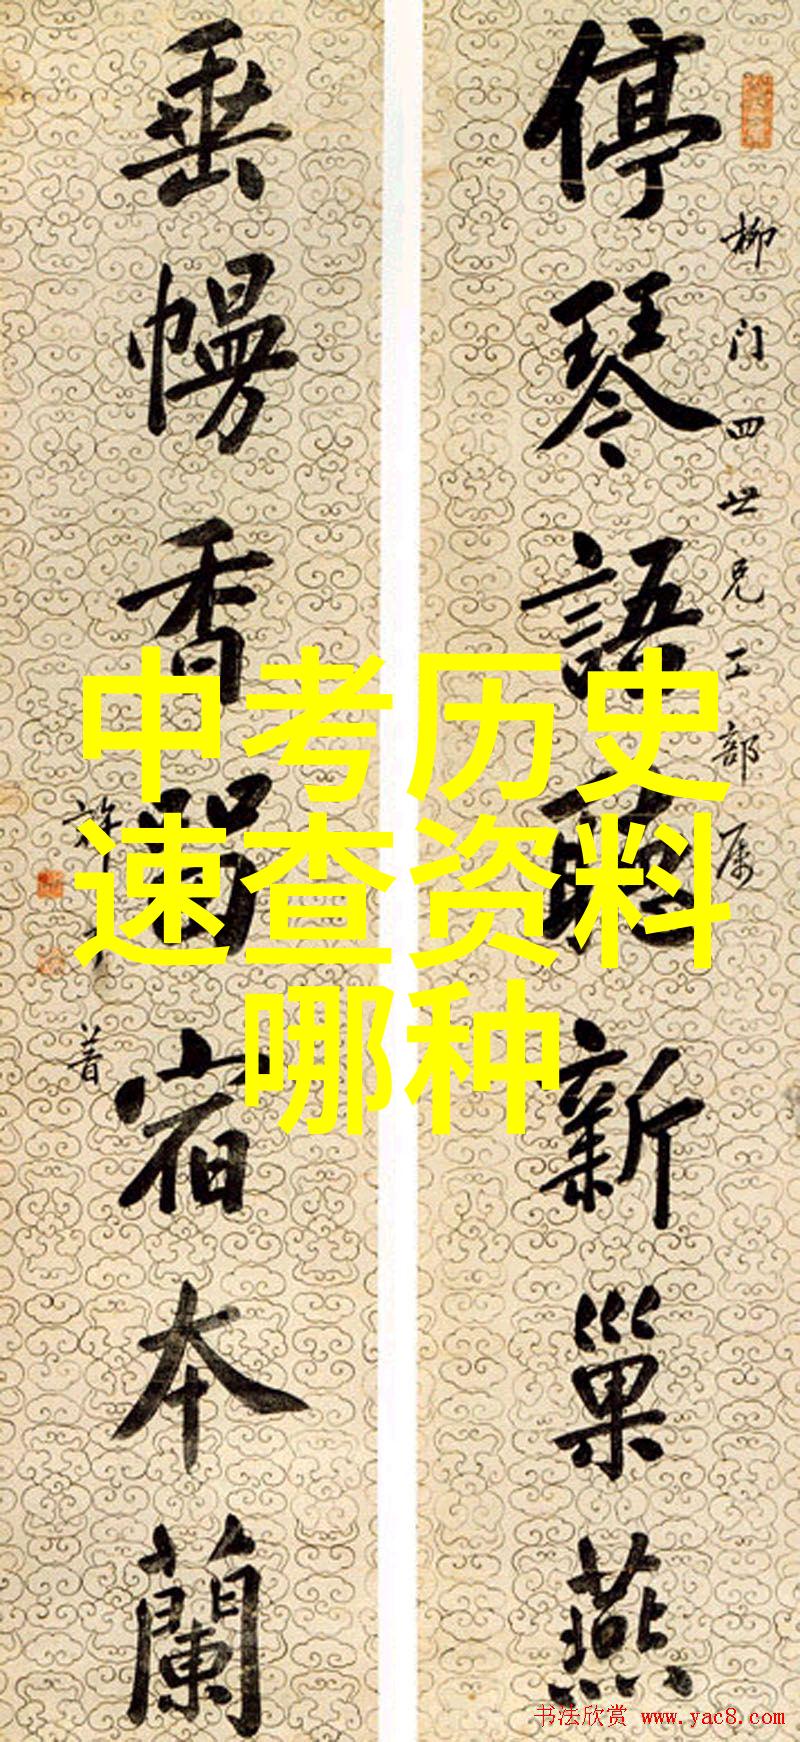 停琴語聽新巢燕
柳门四世兄工部属
垂幔香留宿本蘭
許
着
中考历史
速查资料
哪种
书法欣赏 www.yac8.com